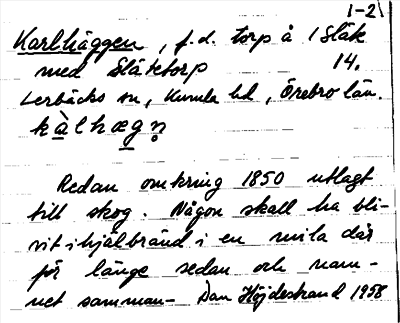 1-21
Karlhäggen, f.d. torp å 1 Släk
med Slätetorp 14.
Lerbäcks sn, Kumla hd, Örebro län.
kàlhægṇ
Redan omkring 1850 utlagt
till skog. Någon skall ha bli-
vit ihjälbränd i en mila där
för länge sedan och nam-
net samman- Dan Höjdestrand 1958